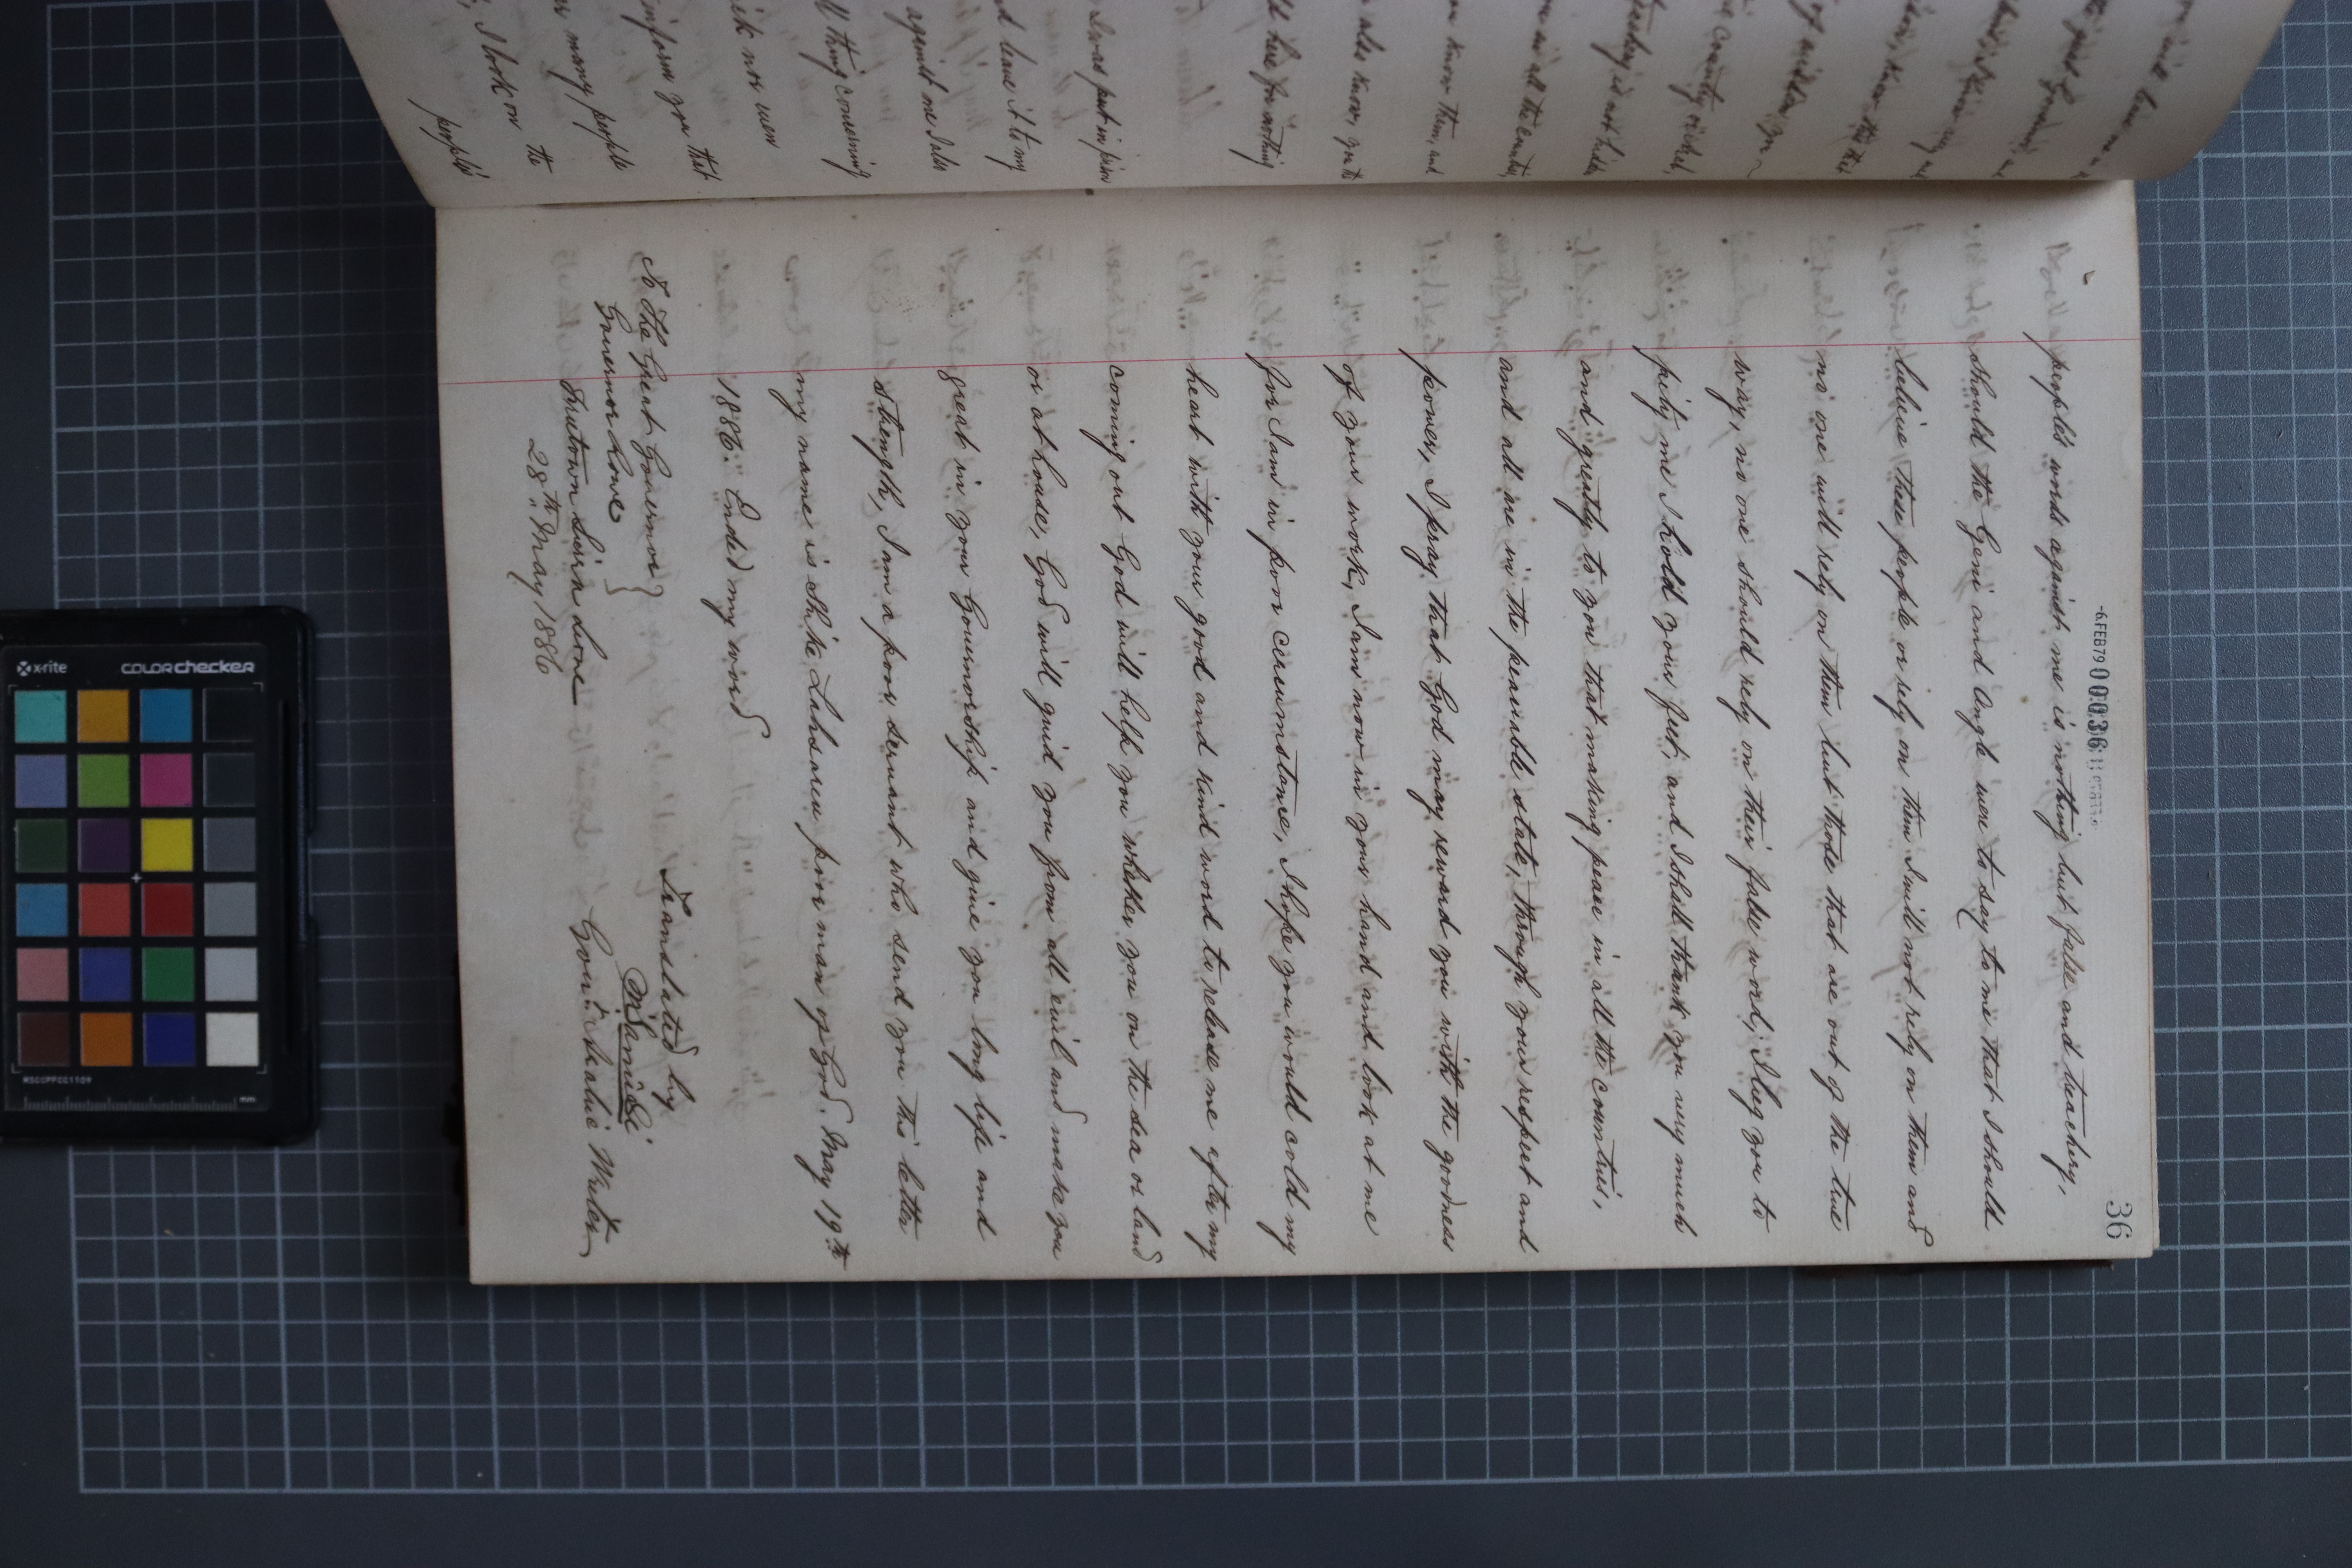 36
-6FEB79 00036
people's words against me is nothing but false and treachery,
should the Geni and Angle were to say to me that I should
believe these people or rely on them I will not rely on them and
no one will rely on them but those that are out of the true
way, no one should rely on their false word; I beg you to
pity me I hold your feet, and I shall thank you very much
and greatly to you that making peace in all the countries,
and all are in the peaceable state, through your respect and
power, I pray that God may reward you with the goodness
of your work, I am now in your hand and look at me
for I am in poor cercumstance, I hope you would cold my
heart with your good and kind word to release me after my
coming out God will help you whether you on the sea or land
or at house, God will guid you from all evil and make you
great in your Governorship and give you long life and
strength, I am a poor servant who send you this letter
my name is Shike Lahsaru poor man of God. May 19th
1886. Ended my word
Translated by
M. Sanusi
Govt. Arabic Writer
To The Great Governor
Governor Rowe
Freetown Sierra Leone
28th May 1886
I was put in prison
and leave it to my
against me I also
all thing concerning
inform you that
many people
I look on the
people's